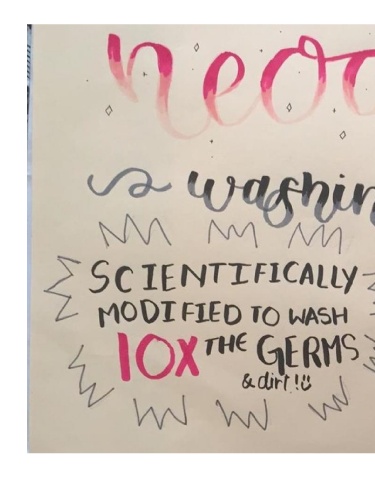 neoo
washin
SCIENTIFICALLY
MODIFIED TO WASH
10X THE GERMS
& dirt!